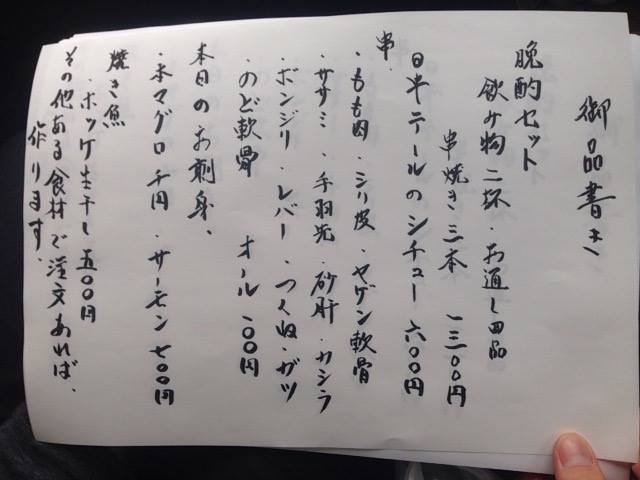 御品書き
晩酌セット
飲み物二杯・お通し四品
串焼き三本 一三〇〇円
日牛テールのシチュー 六〇〇円
串、
・もも肉・シリ皮・ヤゲン軟骨
・ササミ・手羽先・砂肝・カシラ
・ボンジリ・レバー・つくね・ガツ
・のど軟骨 オール一〇〇円
本日のお刺身、
・本マグロ千円・サーモン七〇〇円
焼き魚
・ホッケ生干し五〇〇円
その他ある食材で注文あれば、
作ります.